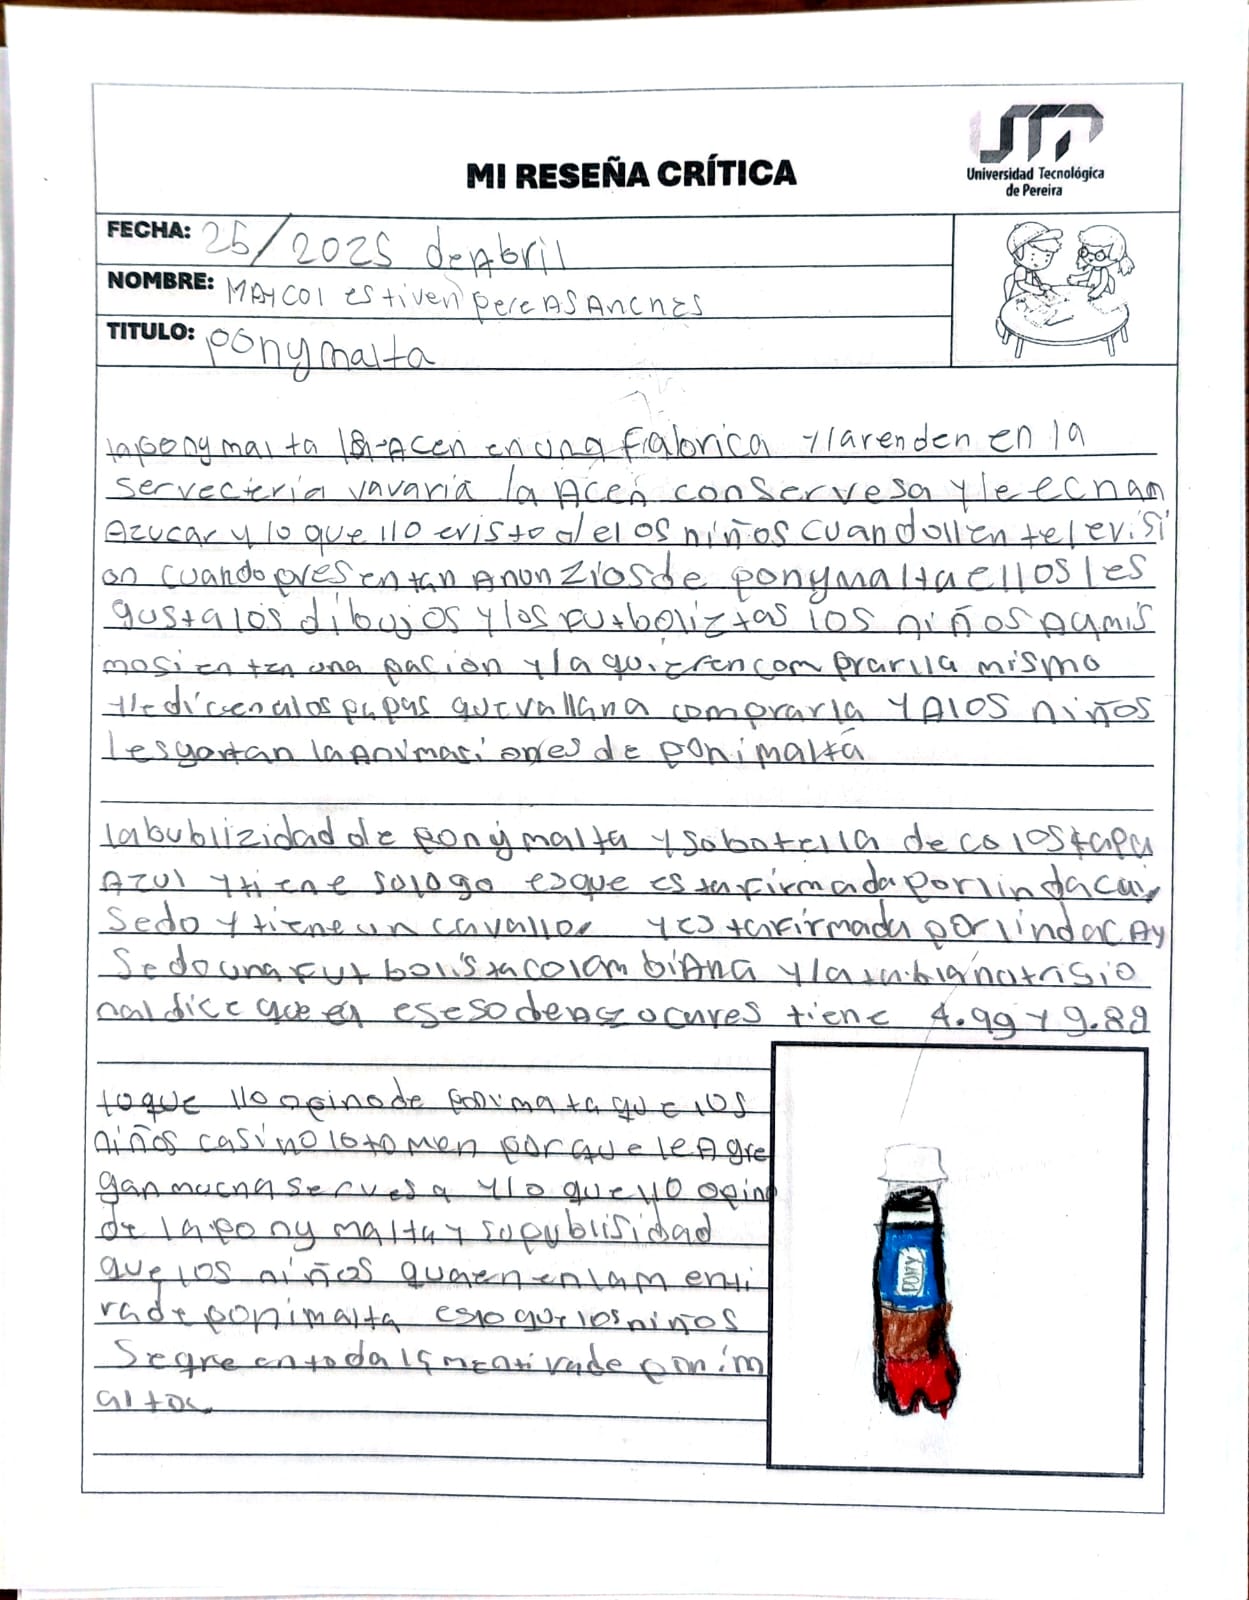 MI RESEÑA CRÍTICA
UTP
Universidad Tecnológica
de Pereira
FECHA: 25/2025 de Abril
NOMBRE: MAYCOl estiven pereASAncnes
TITULO: ponymalta
laponymalta la Acen en una Fabrica y larenden en la
serveceria vavaria la Acen conservesa y le ecnan
Azucar y lo que llo evisto de los niños cuandollen televisi
on cuando presentan Anunzios de ponymalta ellos les
gusta los dibujos y los futboliztas los niños Aqmis
mosienten una pacion y la quieren comprarlla mismo
lle dicen alos papas quevallana comprarla YAlos niños
lesgortan la Animasiones de ponimalta
labublizidad de ponymalta y sobotella de colos tapa
Azul y tiene sologo esque estafirmadaporlindacai
Sedo y tiene un cavallo y estafirmada por lindacAy
Sedo una Futbolista colombiAna y la tabla notrisio
nal dice que el eseso de azocures tiene 4.99 y 9.89
loque llo opino de ponimalta que los
niños casi no lo tomen porque le Agre
gan mucna servesa y lo que llo opino
de la pony malta y su publisidad
que los niños quaen en lam enti
rade ponimalta eslo que los niños
Se qre en toda la mentirade ponim
alta
PONY